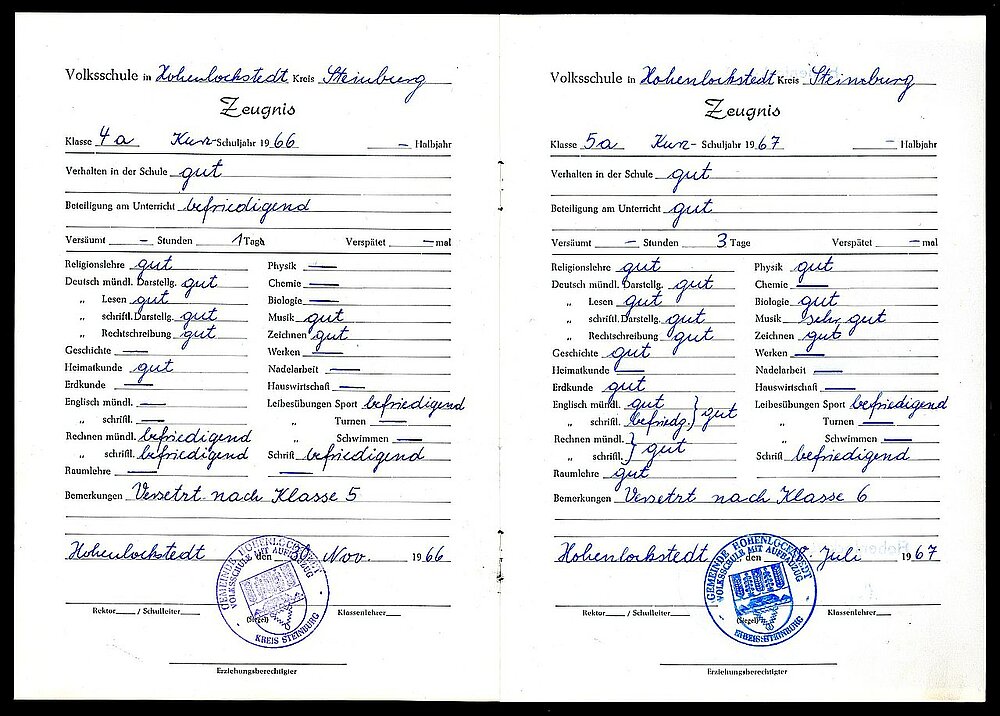 Volksschule in Hohenlockstedt Kreis Steinburg
Zeugnis
Klasse 4a Kurz-Schuljahr 1966 – Halbjahr
Verhalten in der Schule gut
Beteiligung am Unterricht befriedigend
Versäumt – Stunden 1 Tage Verspätet – mal
Religionslehre gut Physik —
Deutsch mündl. Darstellg. gut Chemie —
„ Lesen gut Biologie —
„ schriftl. Darstellg. gut Musik gut
„ Rechtschreibung gut Zeichnen gut
Geschichte — Werken —
Heimatkunde gut Nadelarbeit —
Erdkunde — Hauswirtschaft —
Englisch mündl. — Leibesübungen Sport befriedigend
„ schriftl. — „ Turnen —
Rechnen mündl. befriedigend „ Schwimmen —
„ schriftl. befriedigend Schrift befriedigend
Raumlehre — —
Bemerkungen Versetzt nach Klasse 5
Hohenlockstedt den 30. Nov. 1966
GEMEINDE HOHENLOCKSTEDT
VOLKSSCHULE MIT AUFBAUZUG
(Siegel)
KREIS STEINBURG
Rektor / Schulleiter Klassenlehrer
Erziehungsberechtigter
Volksschule in Hohenlockstedt Kreis Steinburg
Zeugnis
Klasse 5a Kurz- Schuljahr 1967 – Halbjahr
Verhalten in der Schule gut
Beteiligung am Unterricht gut
Versäumt – Stunden 3 Tage Verspätet – mal
Religionslehre gut Physik gut
Deutsch mündl. Darstellg. gut Chemie —
„ Lesen gut Biologie gut
„ schriftl. Darstellg. gut Musik sehr gut
„ Rechtschreibung gut Zeichnen gut
Geschichte gut Werken —
Heimatkunde — Nadelarbeit —
Erdkunde gut Hauswirtschaft —
Englisch mündl. gut } gut Leibesübungen Sport befriedigend
„ schriftl. befriedg. „ Turnen —
Rechnen mündl. } gut „ Schwimmen —
„ schriftl. Schrift befriedigend
Raumlehre gut
Bemerkungen Versetzt nach Klasse 6
Hohenlockstedt, den Juli 1967
GEMEINDE HOHENLOCKSTEDT
VOLKSSCHULE MIT AUFBAUZUG
(Siegel)
KREIS STEINBURG
Rektor / Schulleiter Klassenlehrer
Erziehungsberechtigter